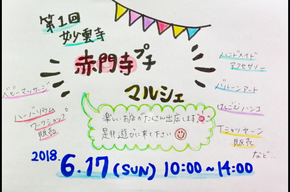 第1回
妙要寺
赤門寺プチ
マルシェ
ベビーマッサージ
ハーバリウム
ワークショップ
販売
ハンドメイド
アクセサリー
バルーンアート
けしごむハンコ
Tシャツヤーン
販売
など…
楽しいお店がたくさん出店します
是非遊びに来て下さい
2018.
6.17(SUN) 10:00~14:00